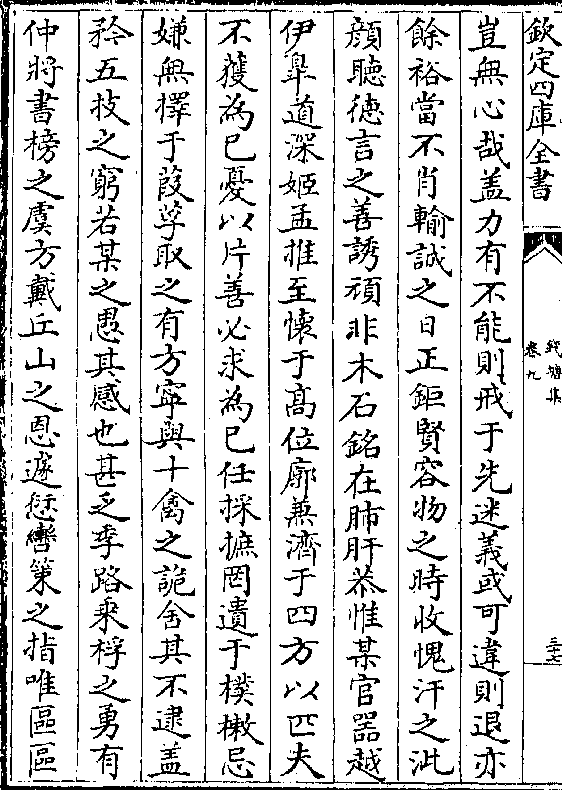 欽定四庫全書
錢塘集
卷九
三十七
豈無心哉盖力有不能則戒于先迷義或可違則退亦
餘裕當不肖輸誠之日正鉅賢容物之時收愧汗之泚
顔聴徳言之善誘頑非木石銘在肺肝恭惟某官器越
伊臯道深姬孟推至懐于髙位廓兼濟于四方以匹夫
不獲為已憂以片善必求為已任採摭罔遺于樸樕忌
嫌無擇于葭莩取之有方寜與十禽之詭舍其不逮盖
矜五技之窮若某之愚其感也甚乏季路乘桴之勇有
仲將書榜之虞方戴丘山之恩遽愆轡策之指唯區區